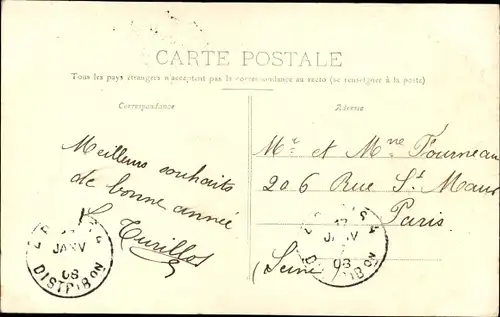 CARTE POSTALE
Tous les pays étrangers n'acceptent pas la correspondance au recto (se renseigner à la poste)
Correspondance
Adresse
Meilleurs souhaits
de bonne année
Mr et Mme Fourneau
206 Rue St Maur
Paris
(Seine)
JANV
08
DISTRIBON
17
JANV
08